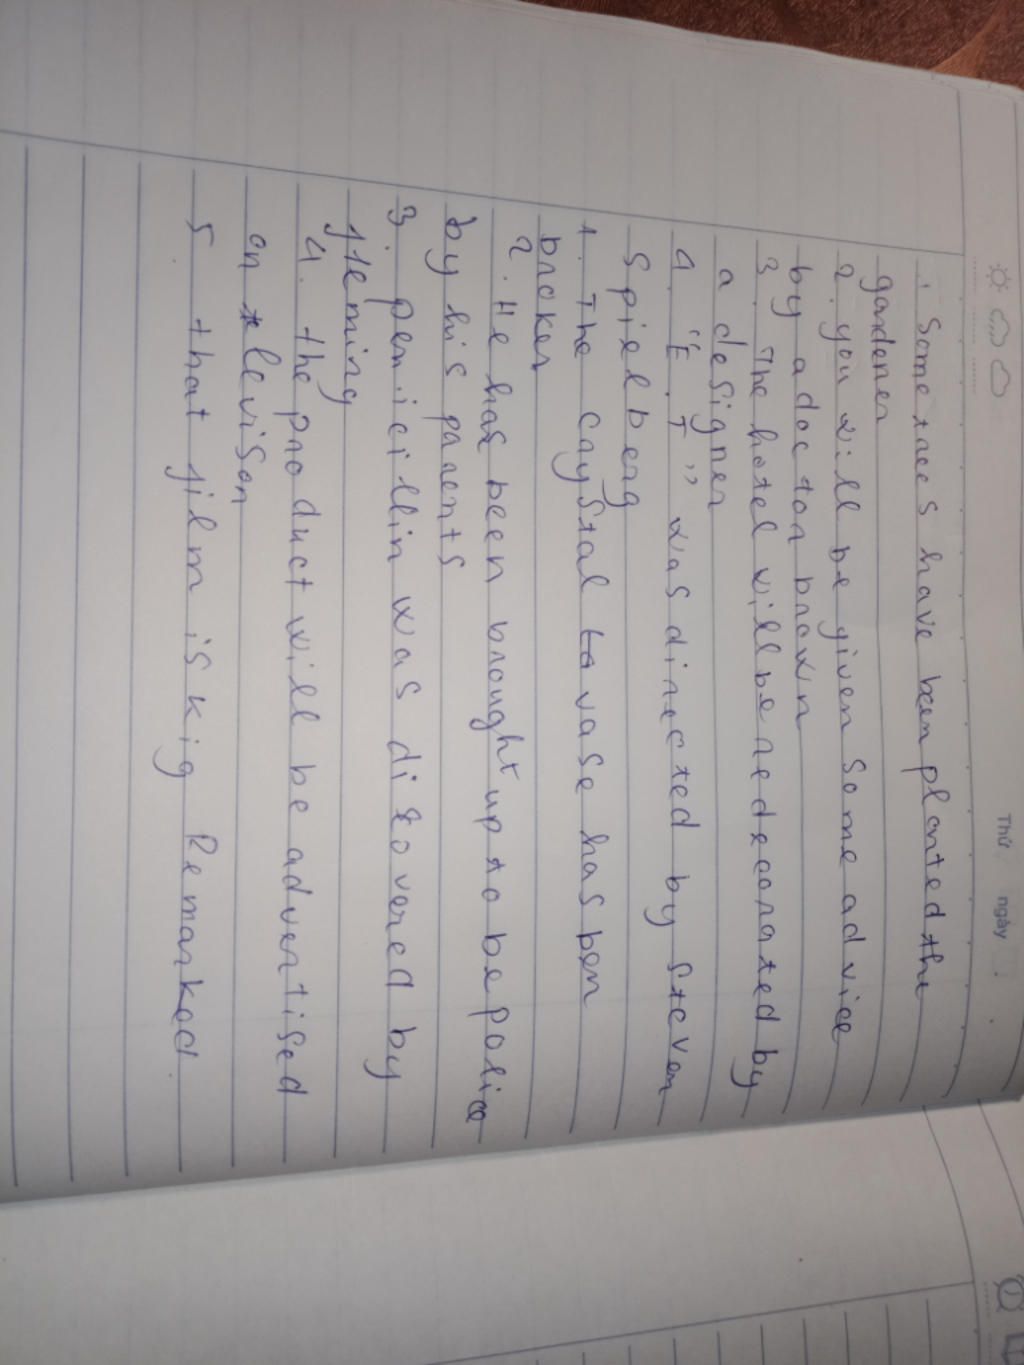 Thứ ngày
1. Some trees have been planted the
gardener
2. you will be given some advice
by a doctor brown
3. The hotel will be redecorated by
a designer
4. "E.T" was directed by Steven
Spielberg
1. The crystal to vase has ben
broken
2. He has been brought up to be police
by his parents
3. penicillin was discovered by
fleming
4. the product will be advertised
on televison
5 that film is kig Remarked.